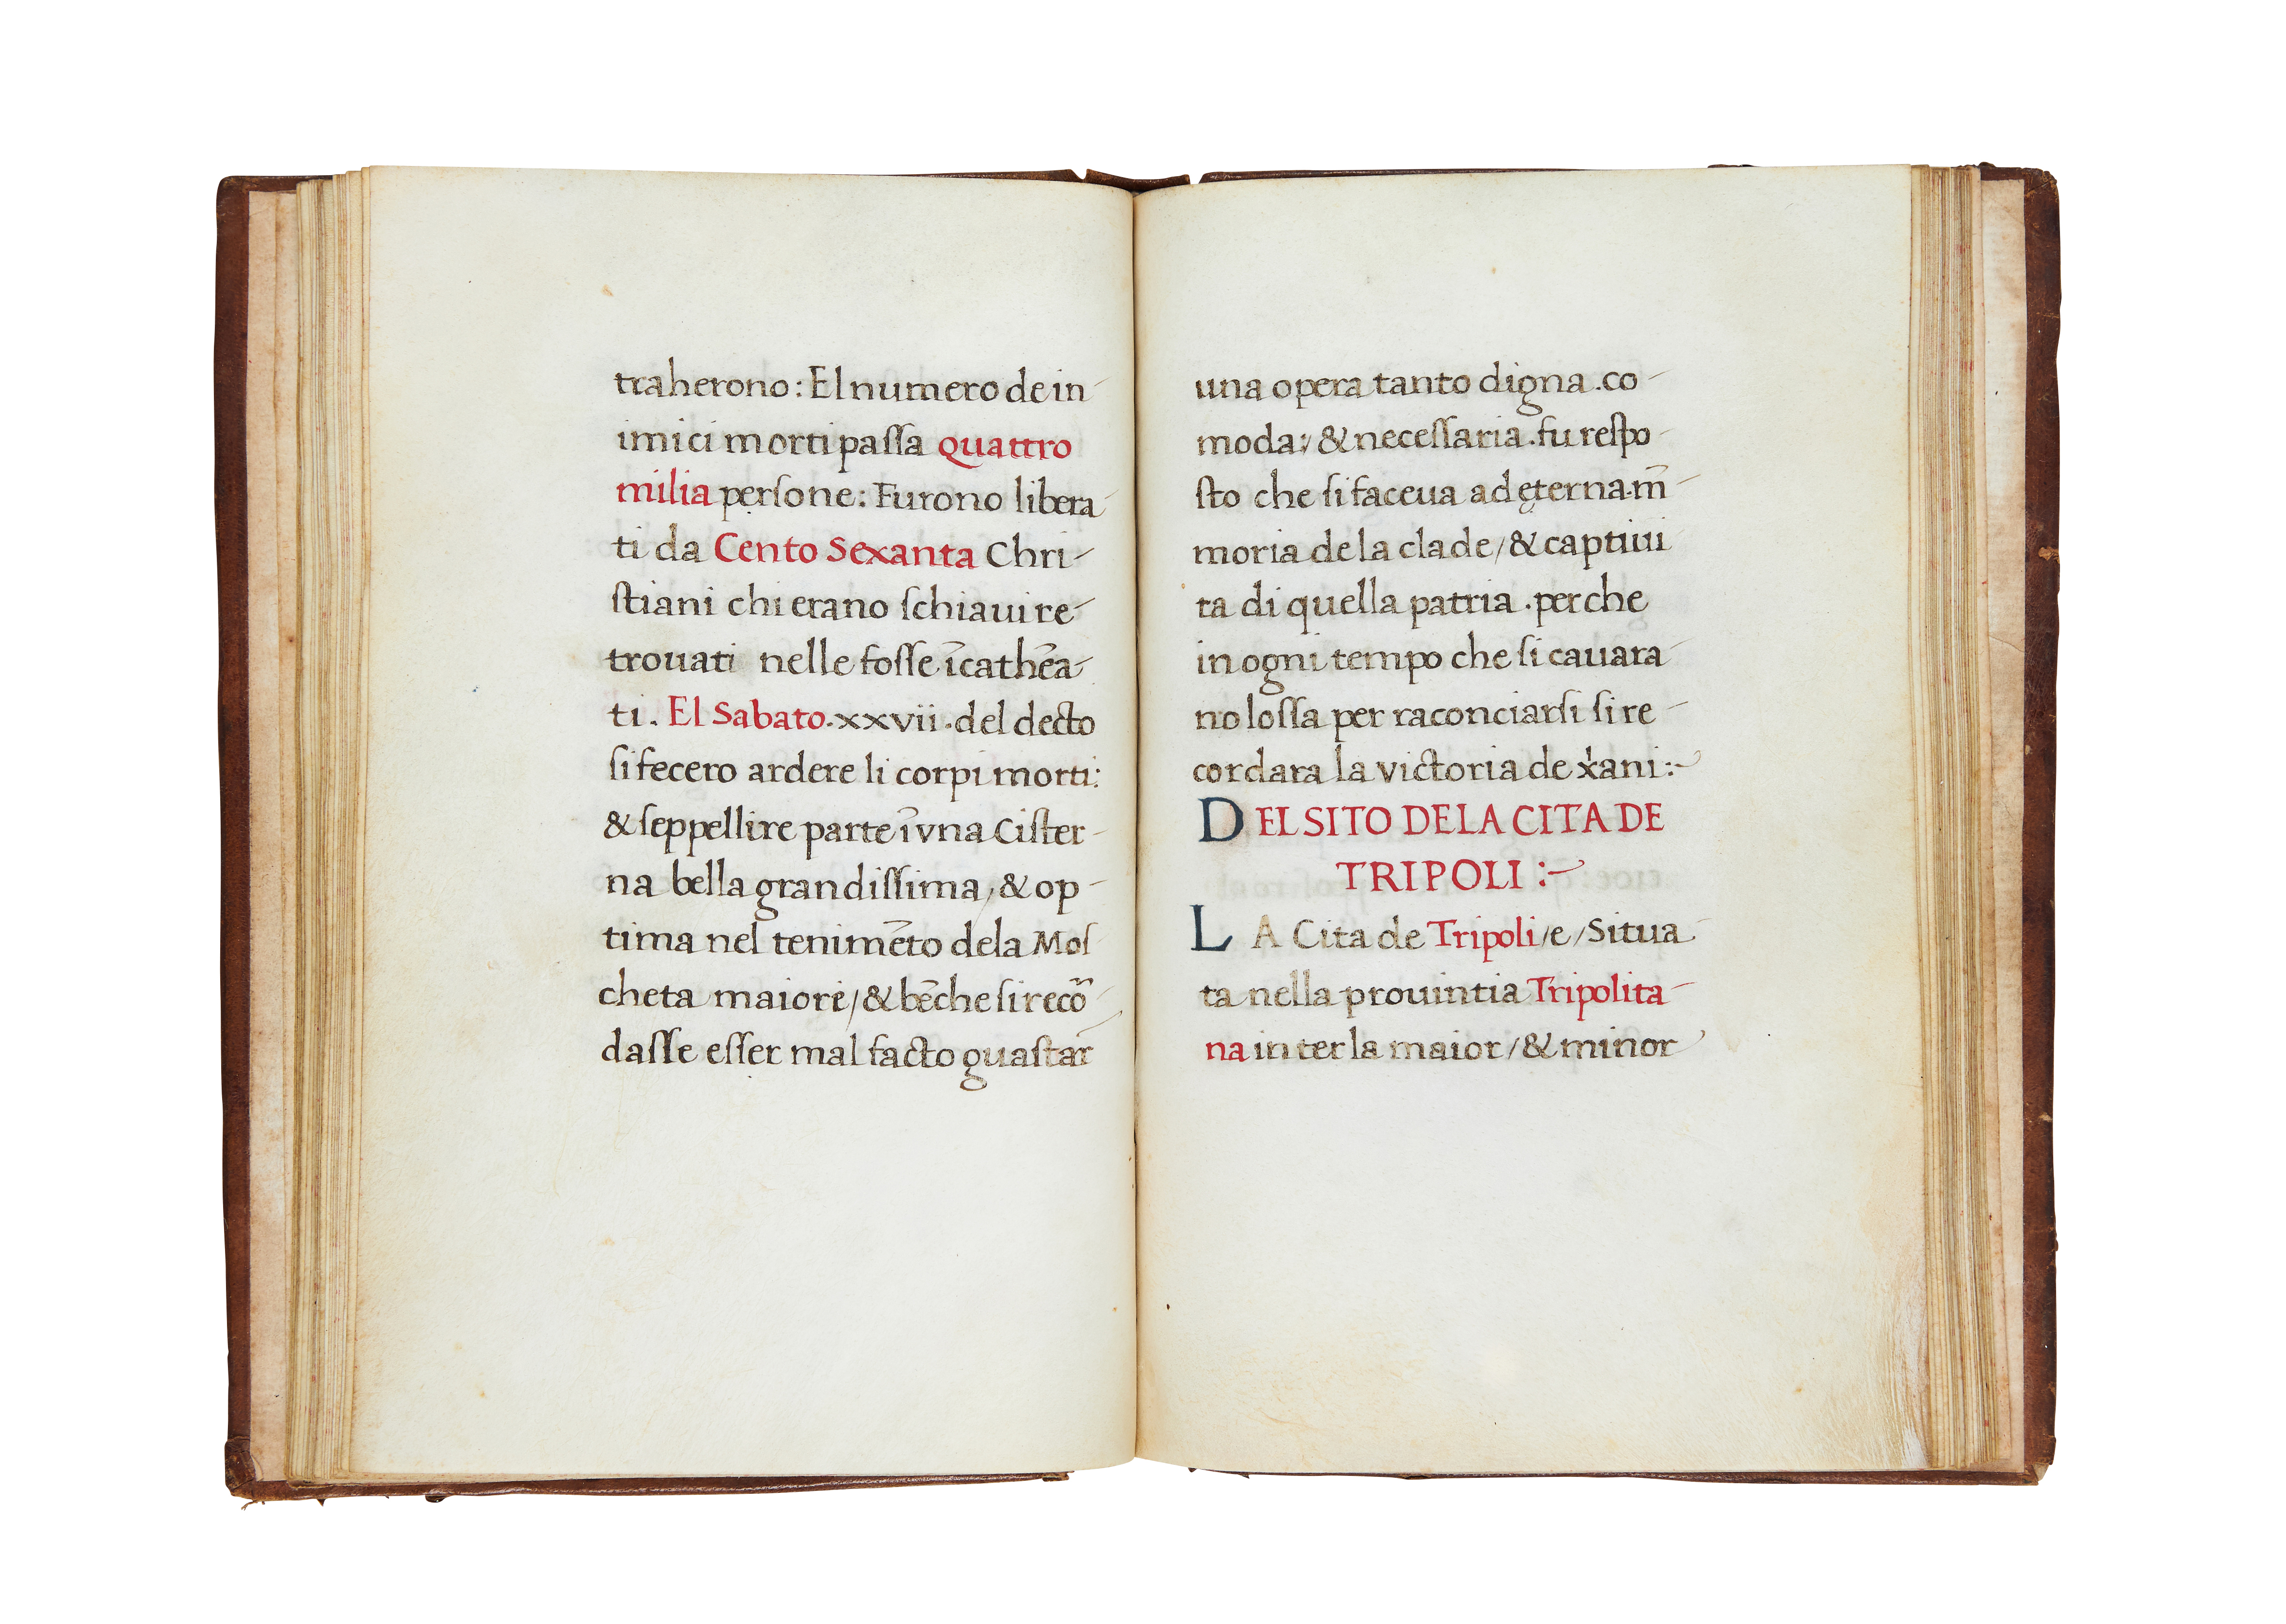 traherono: El numero de in-
imici morti paſſa quattro
milia perſone: Furono libera-
ti da Cento Sexanta Chri-
ſtiani chi erano ſchiaui re-
trouati nelle foſſe īcathēa-
ti. El Sabato .xxvii. del decto
ſi fecero ardere li corpi morti:
& ſeppellire parte ī vna Ciſter-
na bella grandiſſima, & op-
tima nel tenimēto dela Moſ
cheta maiore/ & bēche ſi recō-
daſſe eſſer mal facto guaſtar̄
una opera tanto digna. co-
moda:/ & neceſſaria. fu reſpo-
ſto che ſi faceua ad ęterna.m̄-
moria de la clade/ & captiui
ta di quella patria. perche
in ogni tempo che ſi cauara-
no loſſa per raconciarſi ſi re-
cordara la victoria de xani:~
DEL SITO DE LA CITA DE
TRIPOLI:~
LA Cita de Tripoli /e/ Situa-
ta nella prouintia Tripolita-
na inter la maior/ & minor